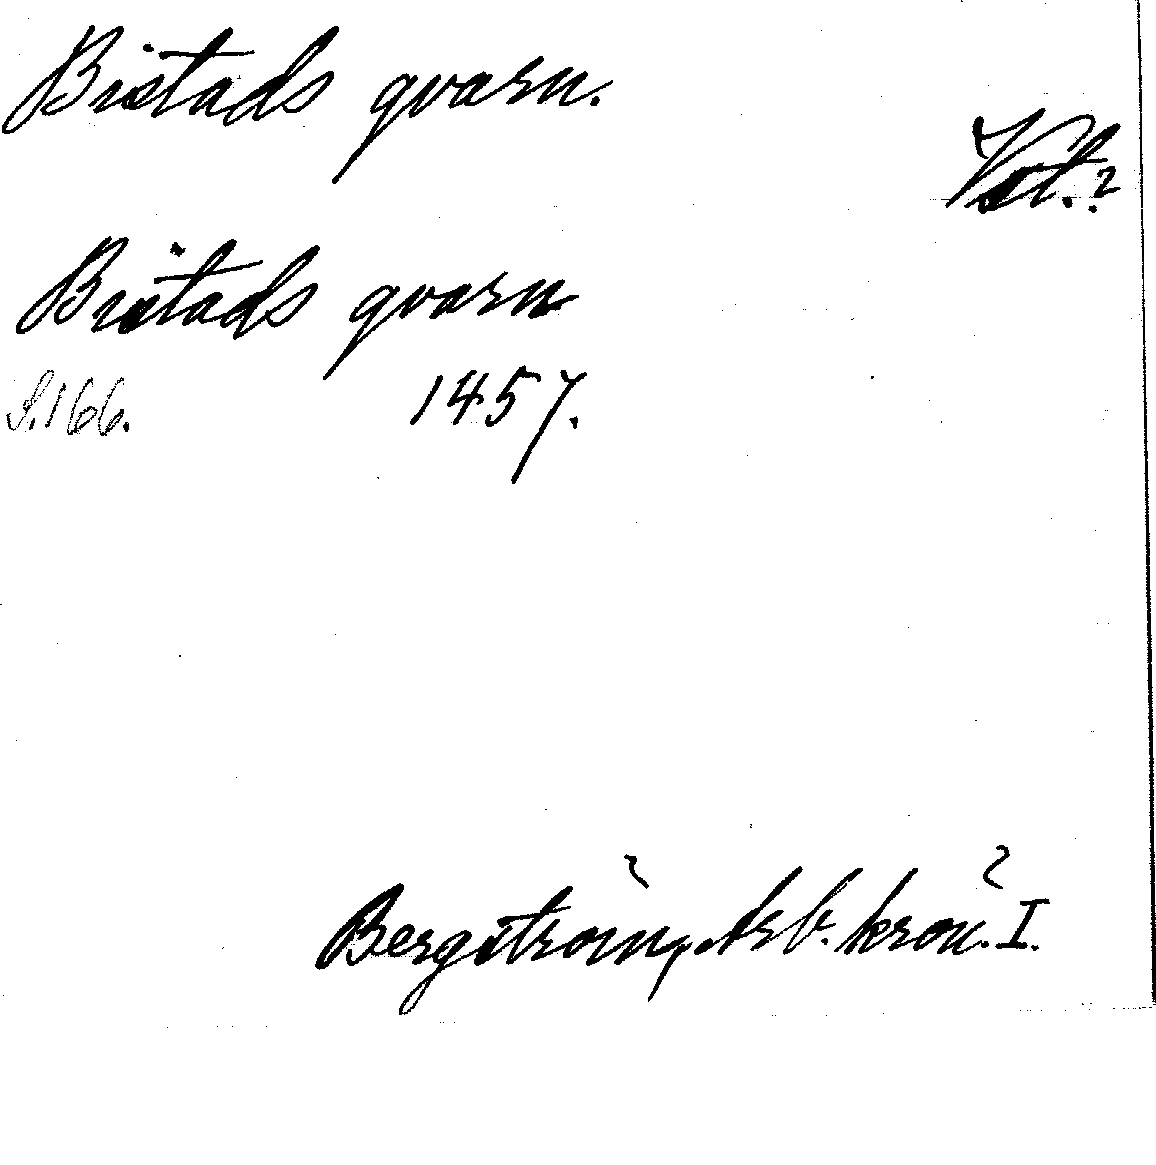 Bistads qvarn.
Vst.?
Bistads qvarn
S. 166. 1457.
Bergström, Arb. krön. I.